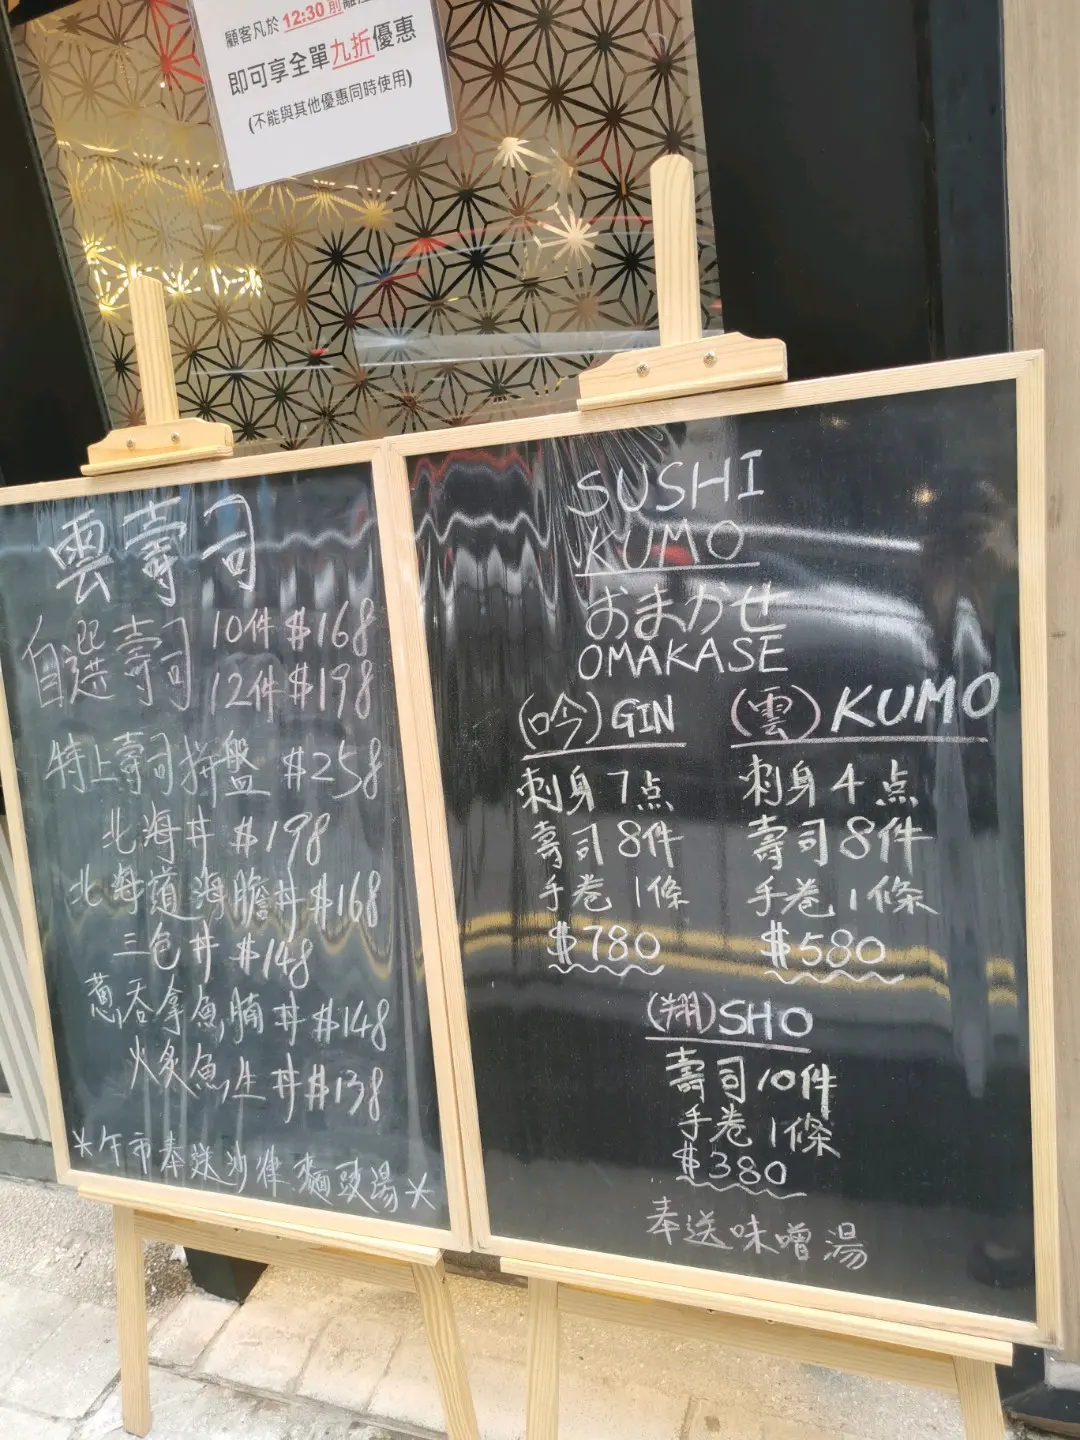 顧客凡於 12:30 前離
即可享全單九折優惠
(不能與其他優惠同時使用)
雲壽司
自選壽司 10件 $168
12件 $198
特上壽司拼盤 $258
北海丼 $198
北海道海膽丼 $168
三色丼 $148
蔥吞拿魚腩丼 $148
火炙魚生丼 $138
*午市奉送沙律.麵豉湯*
SUSHI
KUMO
おまかせ
OMAKASE
(吟) GIN
刺身 7点
壽司 8件
手卷 1條
$780
(雲) KUMO
刺身 4点
壽司 8件
手卷 1條
$580
(翔) SHO
壽司 10件
手卷 1條
$380
奉送味噌湯